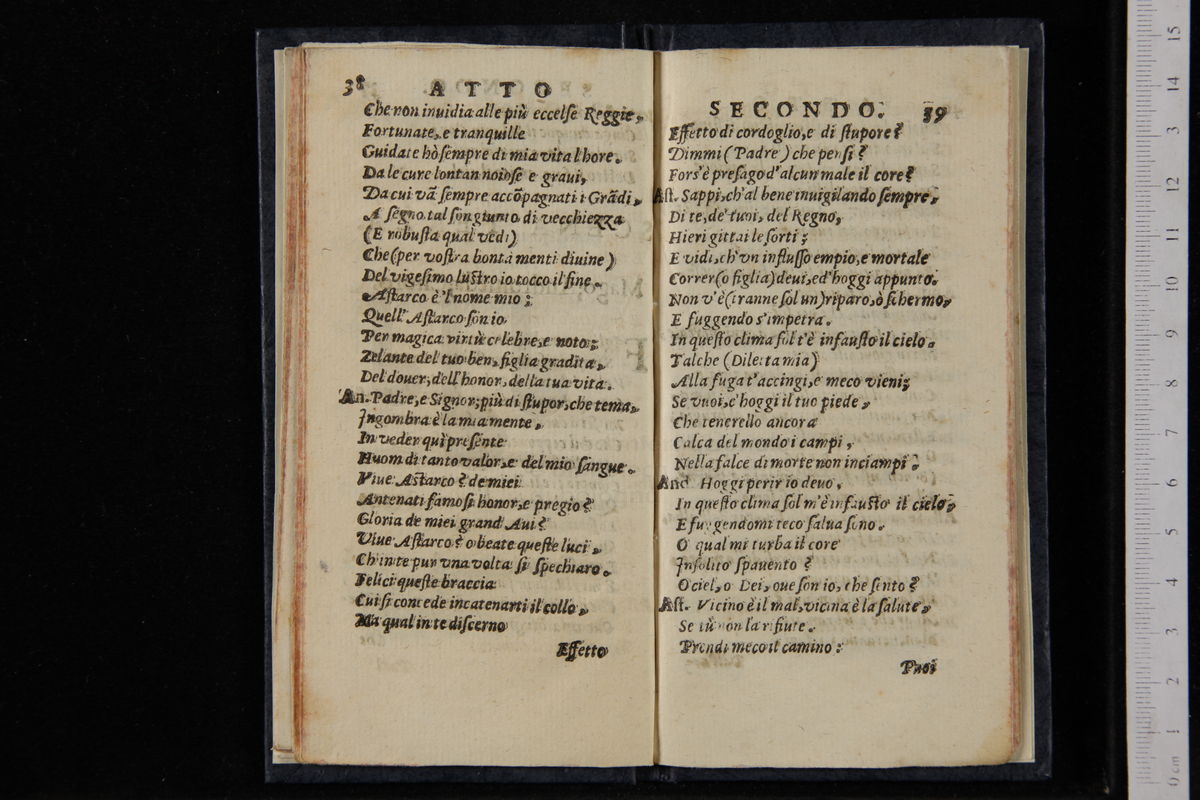 38 ATTO
Che non inuidia alle più eccelse Reggie,
Fortunate, e tranquille
Guidate hò sempre di mia vita l'hore.
Da le cure lontan noiose e graui,
Da cui vā sempre accōpagnati i Grādi,
A segno tal son giunto di vecchiezza
(E robusta qual vedi)
Che (per vostra bontà menti diuine)
Del vigesimo lustro io tocco il fine.
Astarco è 'l nome mio;
Quell' Astarco son io
Per magica virtù celebre, e noto;
Zelante del tuo ben, figlia gradita,
Del douer, dell'honor, della tua vita.
An. Padre, e Signor; più di stupor, che tema,
Ingombra è la mia mente,
In veder quì presente
Huom di tanto valor, e del mio sangue.
Viue Astarco? de miei
Antenati famosi honor, e pregio?
Gloria de miei grand' Aui?
Viue Astarco? o beate queste luci,
Ch'in te pur vna volta si spechiaro.
Felici queste braccia
Cui si concede incatenarti il collo,
Ma qual in te discerno
Effetto
SECONDO. 39
Effetto di cordoglio, e di stupore?
Dimmi (Padre) che pensi?
Fors'è presago d'alcun male il core?
Ast. Sappi, ch'al bene inuigilando sempre,
Di te, de' tuoi, del Regno,
Hieri gittai le sorti;
E vidi, ch'vn influsso empio, e mortale
Correr (o figlia) deui, ed'hoggi appunto.
Non v'è (tranne sol un) riparo, ò schermo,
E fuggendo s'impetra.
In questo clima sol t'è infausto il cielo.
Talche (Diletta mia)
Alla fuga t'accingi, e meco vieni;
Se vuoi, c'hoggi il tuo piede,
Che tenerello ancora
Calca del mondo i campi,
Nella falce di morte non inciampi.
And Hoggi perir io deuo,
In questo clima sol m'è infausto il cielo,
E fuggendomi teco salua sono.
O qual mi turba il core
Insolito spauento?
O ciel, o Dei, oue son io, che sento?
Ast. Vicino è il mal, vicina è la salute,
Se tù non la rifiute.
Prendi meco il camino:
Puoi
0 cm 1 2 3 4 5 6 7 8 9 10 11 12 13 14 15